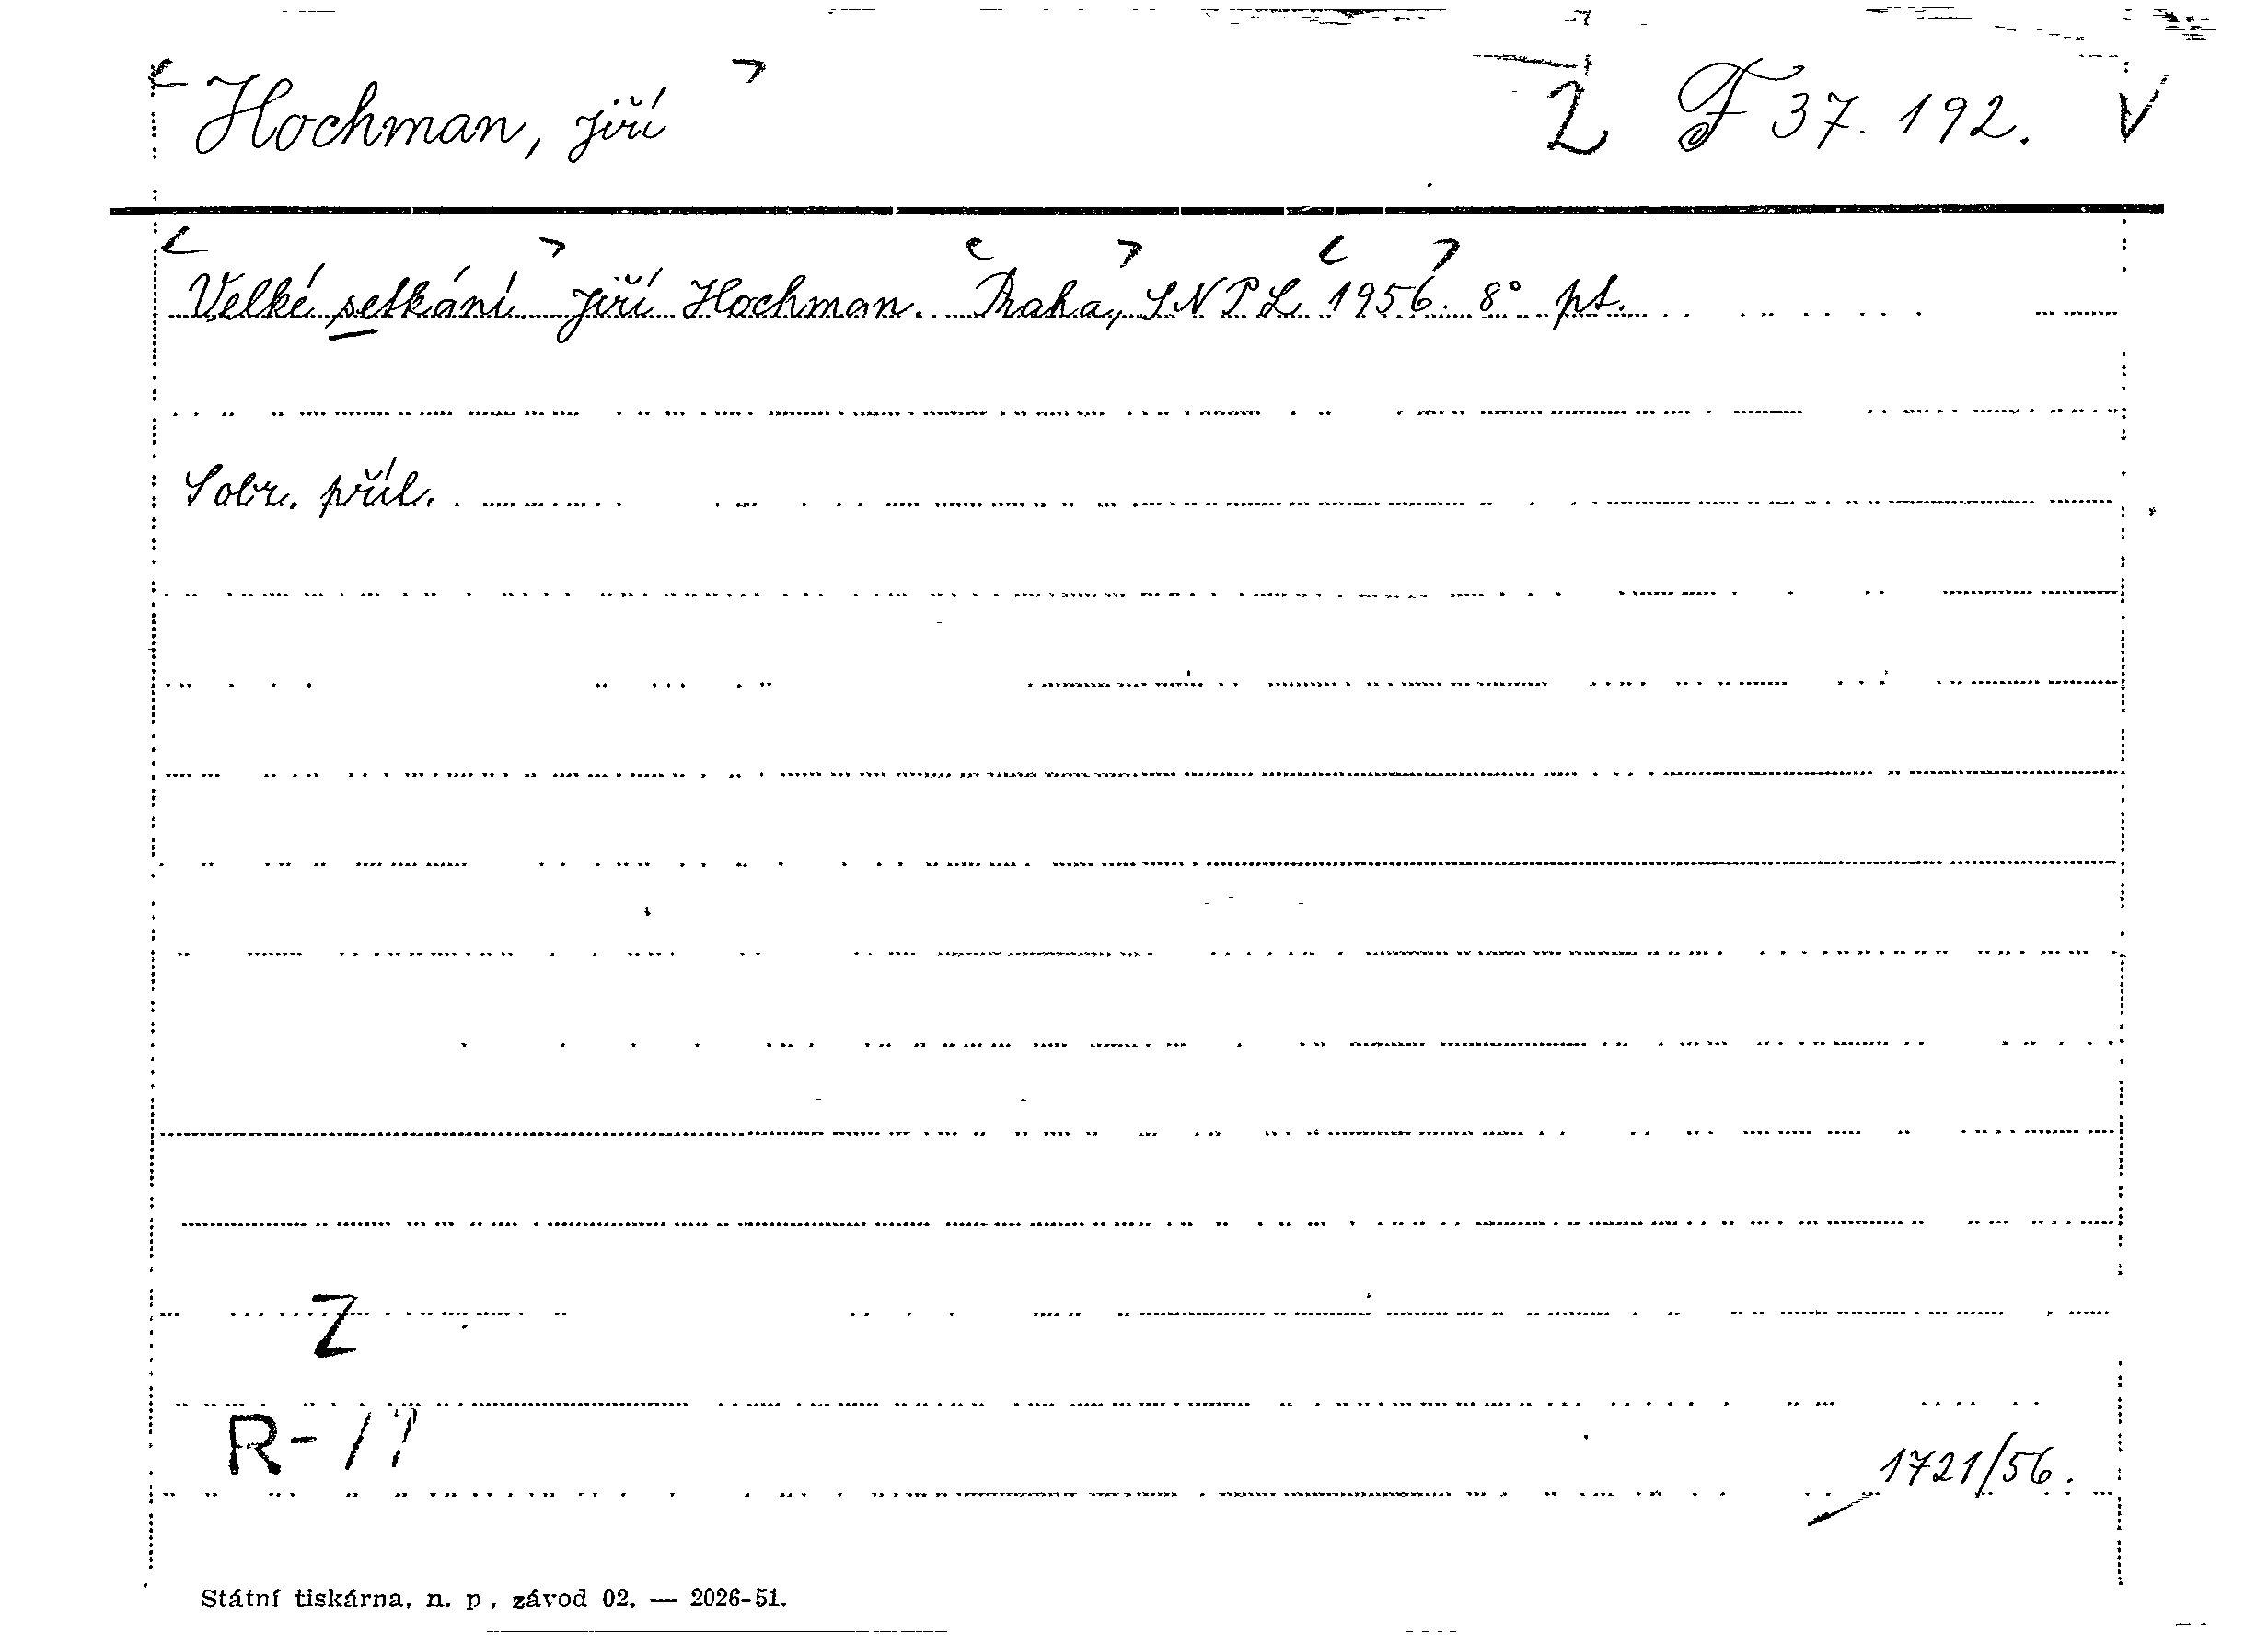 Hochman, Jiří Z F 37.192. V
Velké setkání. Jiří Hochman. Praha, SNPL 1956. 8° pt.
Sobr. příl.
Z
R-
1721/56.
Státní tiskárna, n. p., závod 02. — 2026-51.